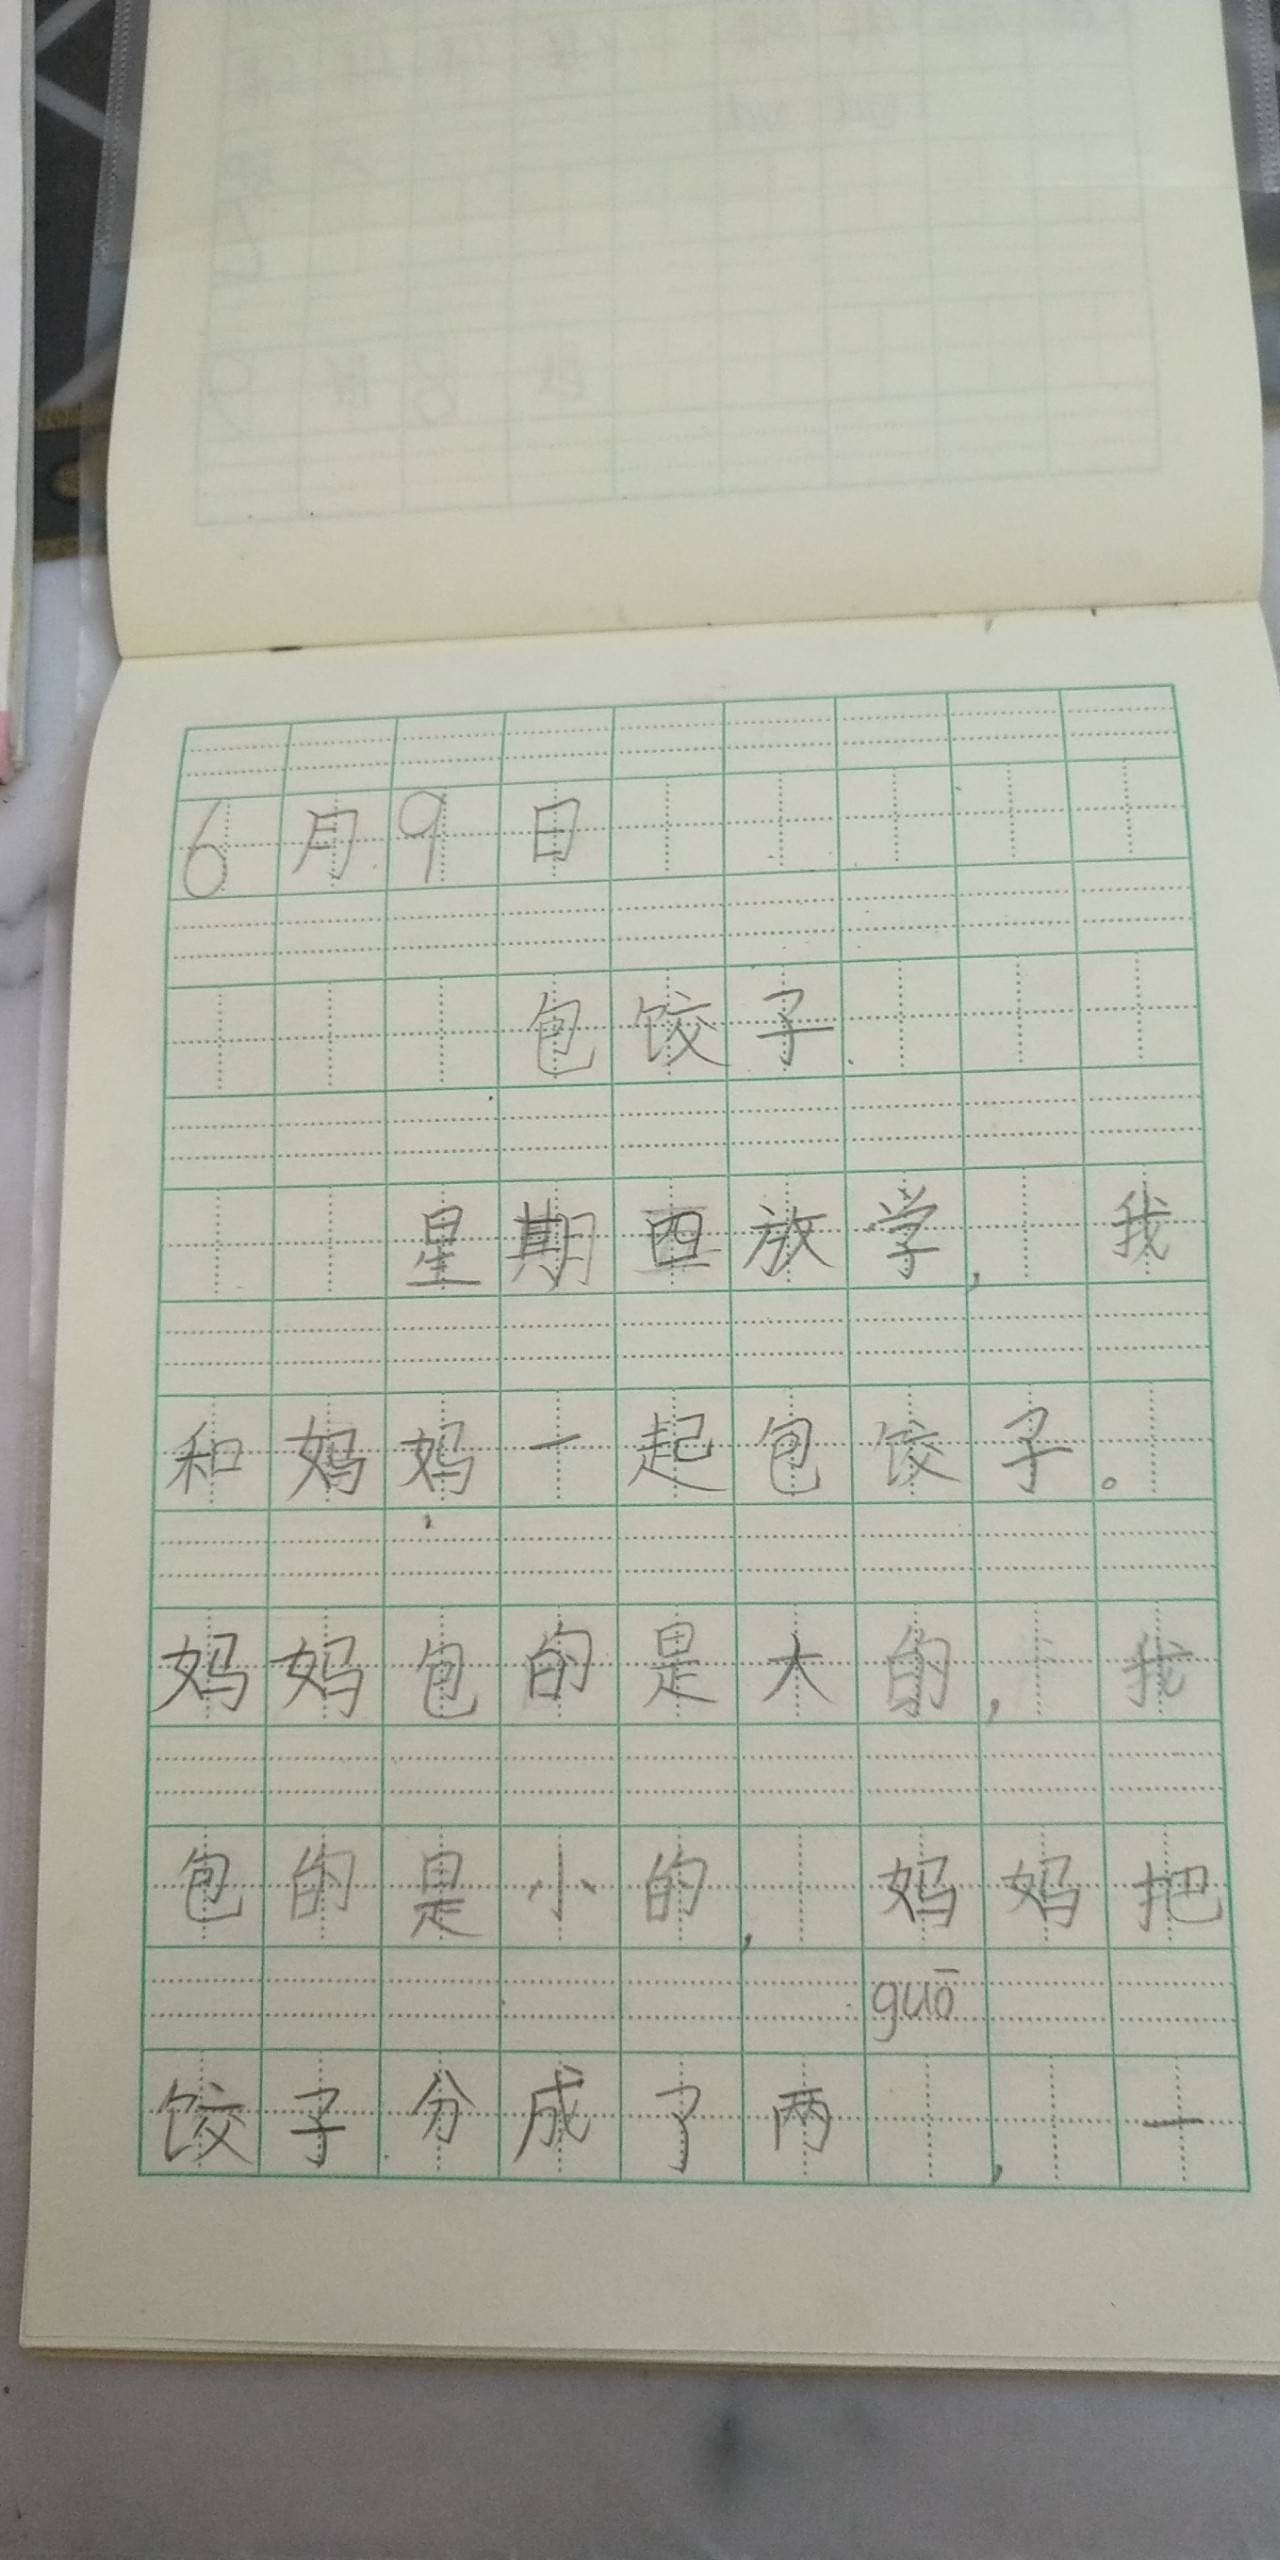 6月9日
包饺子
星期四放学，我
和妈妈一起包饺子。
妈妈包的是大的，我
包的是小的，妈妈把
guō
饺子分成了两，一